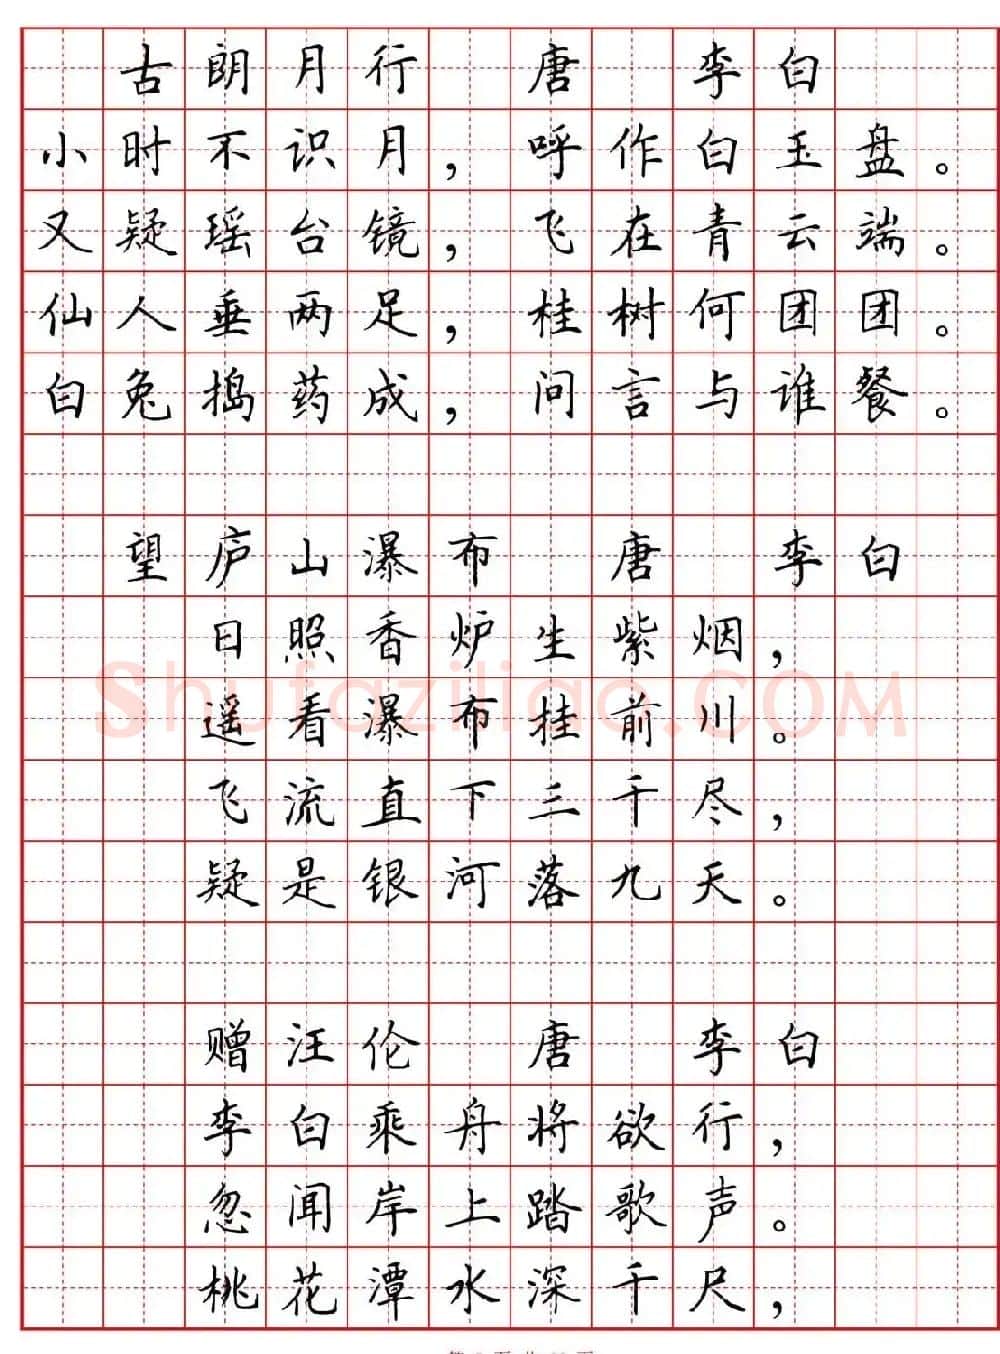 古朗月行 唐 李白
小时不识月，呼作白玉盘。
又疑瑶台镜，飞在青云端。
仙人垂两足，桂树何团团。
白兔捣药成，问言与谁餐。
望庐山瀑布 唐 李白
日照香炉生紫烟，
遥看瀑布挂前川。
飞流直下三千尽，
疑是银河落九天。
赠汪伦 唐 李白
李白乘舟将欲行，
忽闻岸上踏歌声。
桃花潭水深千尺，
Shufaziliao.COM